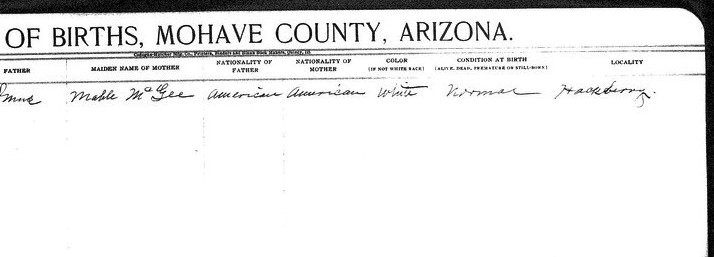 OF BIRTHS, MOHAVE COUNTY, ARIZONA.
FATHER MAIDEN NAME OF MOTHER NATIONALITY OF FATHER NATIONALITY OF MOTHER COLOR (IF NOT WHITE RACE) CONDITION AT BIRTH (ALIVE, DEAD, PREMATURE OR STILL-BORN) LOCALITY
Mable McGee American American White Normal Hackberry.